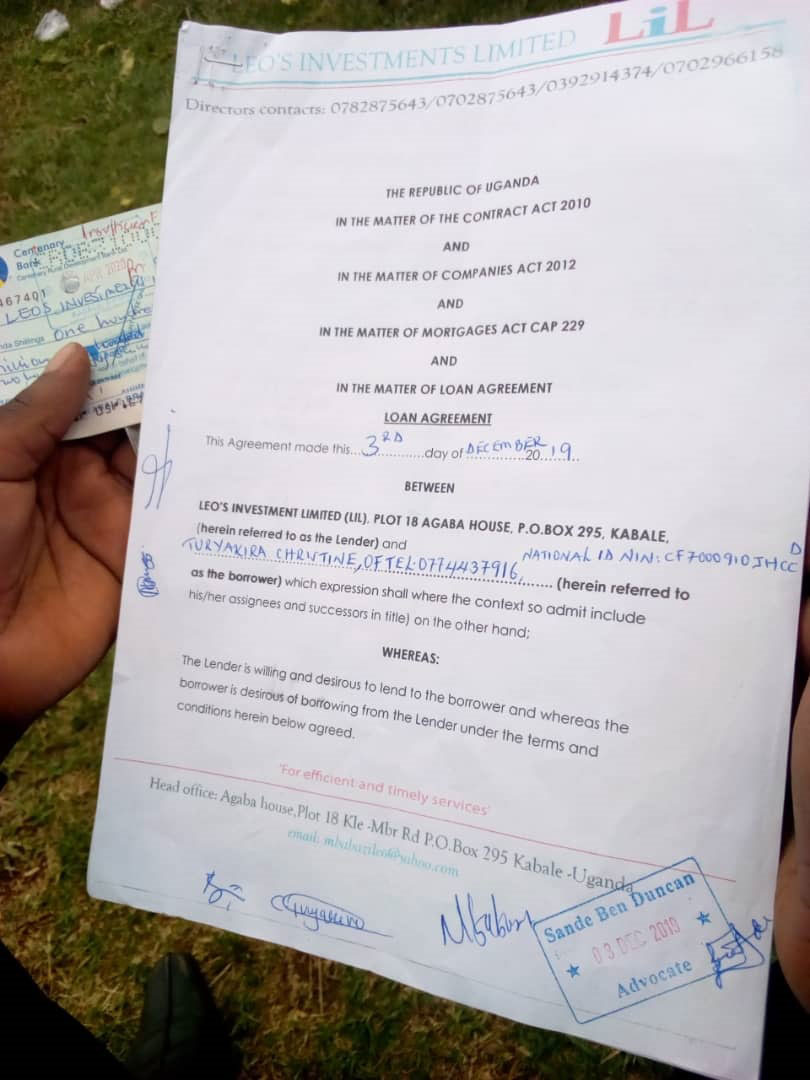 LEO'S INVESTMENTS LIMITED LiL
Directors contacts: 0782875643/0702875643/0392914374/0702966158
THE REPUBLIC OF UGANDA
IN THE MATTER OF THE CONTRACT ACT 2010
AND
IN THE MATTER OF COMPANIES ACT 2012
AND
IN THE MATTER OF MORTGAGES ACT CAP 229
AND
IN THE MATTER OF LOAN AGREEMENT
LOAN AGREEMENT
This Agreement made this...3RD............day of DECEMBER 20 19
BETWEEN
LEO'S INVESTMENT LIMITED (LIL). PLOT 18 AGABA HOUSE, P.O.BOX 295, KABALE,
(herein referred to as the Lender) and NATIONAL ID NIN: CF7000910JHCCD
TURYAKIRA CHRISTINE, OF TEL: 0774437916,....... (herein referred to
as the borrower) which expression shall where the context so admit include
his/her assignees and successors in title) on the other hand;
WHEREAS:
The Lender is willing and desirous to lend to the borrower and whereas the
borrower is desirous of borrowing from the Lender under the terms and
conditions herein below agreed.
'For efficient and timely services'
Head office: Agaba house,Plot 18 Kle -Mbr Rd P.O.Box 295 Kabale -Uganda
email: mbabazileo@yahoo.com
Sande Ben Duncan
03 DEC 2019
Advocate
Centenary
Bank
Insufficient
APR 2020
467401
LEOS INVESTMENT
Shillings One hundred